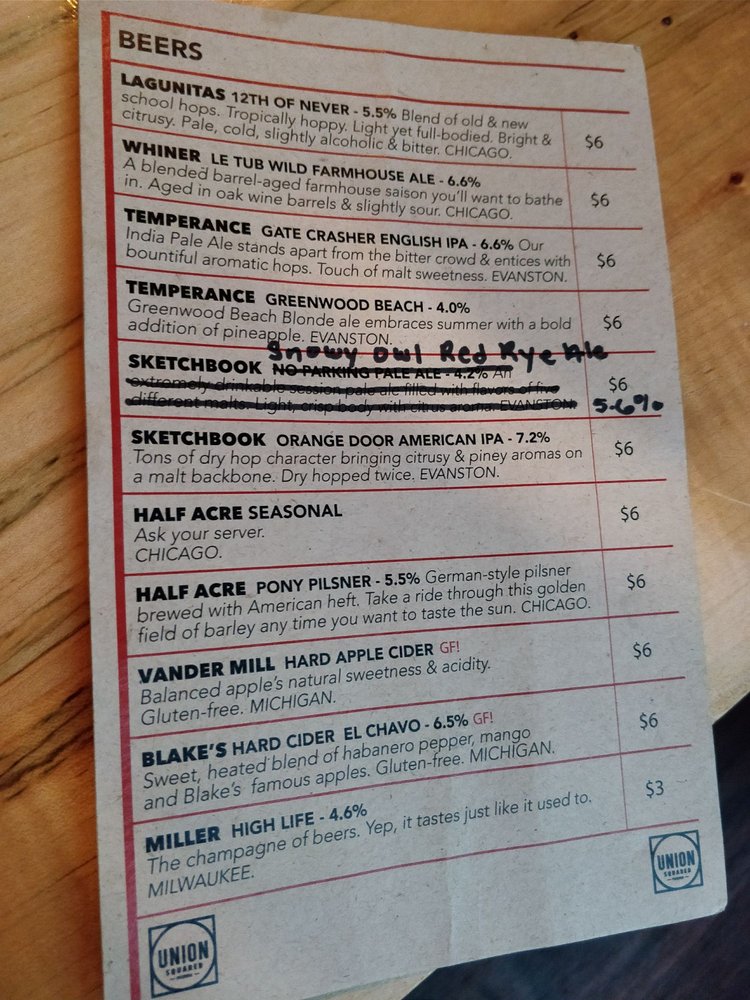 BEERS
LAGUNITAS 12TH OF NEVER - 5.5% Blend of old & new
school hops. Tropically hoppy. Light yet full-bodied. Bright &
citrusy. Pale, cold, slightly alcoholic & bitter. CHICAGO.
$6
WHINER LE TUB WILD FARMHOUSE ALE - 6.6%
A blended barrel-aged farmhouse saison you'll want to bathe
in. Aged in oak wine barrels & slightly sour. CHICAGO.
$6
TEMPERANCE GATE CRASHER ENGLISH IPA - 6.6% Our
India Pale Ale stands apart from the bitter crowd & entices with
bountiful aromatic hops. Touch of malt sweetness. EVANSTON.
$6
TEMPERANCE GREENWOOD BEACH - 4.0%
Greenwood Beach Blonde ale embraces summer with a bold
addition of pineapple. EVANSTON.
$6
Snowy owl Red Rye Ale
SKETCHBOOK NO PARKING PALE ALE - 4.2% An
extremely drinkable session pale ale filled with flavors of five
different malts. Light, crisp body with citrus aroma. EVANSTON.
$6
5.6%
SKETCHBOOK ORANGE DOOR AMERICAN IPA - 7.2%
Tons of dry hop character bringing citrusy & piney aromas on
a malt backbone. Dry hopped twice. EVANSTON.
$6
HALF ACRE SEASONAL
Ask your server.
CHICAGO.
$6
HALF ACRE PONY PILSNER - 5.5% German-style pilsner
brewed with American heft. Take a ride through this golden
field of barley any time you want to taste the sun. CHICAGO.
$6
VANDER MILL HARD APPLE CIDER GF!
Balanced apple's natural sweetness & acidity.
Gluten-free. MICHIGAN.
$6
BLAKE'S HARD CIDER EL CHAVO - 6.5% GF!
Sweet, heated blend of habanero pepper, mango
and Blake's famous apples. Gluten-free. MICHIGAN.
$6
MILLER HIGH LIFE - 4.6%
The champagne of beers. Yep, it tastes just like it used to.
MILWAUKEE.
$3
UNION
SQUARED
UNION
SQUARED